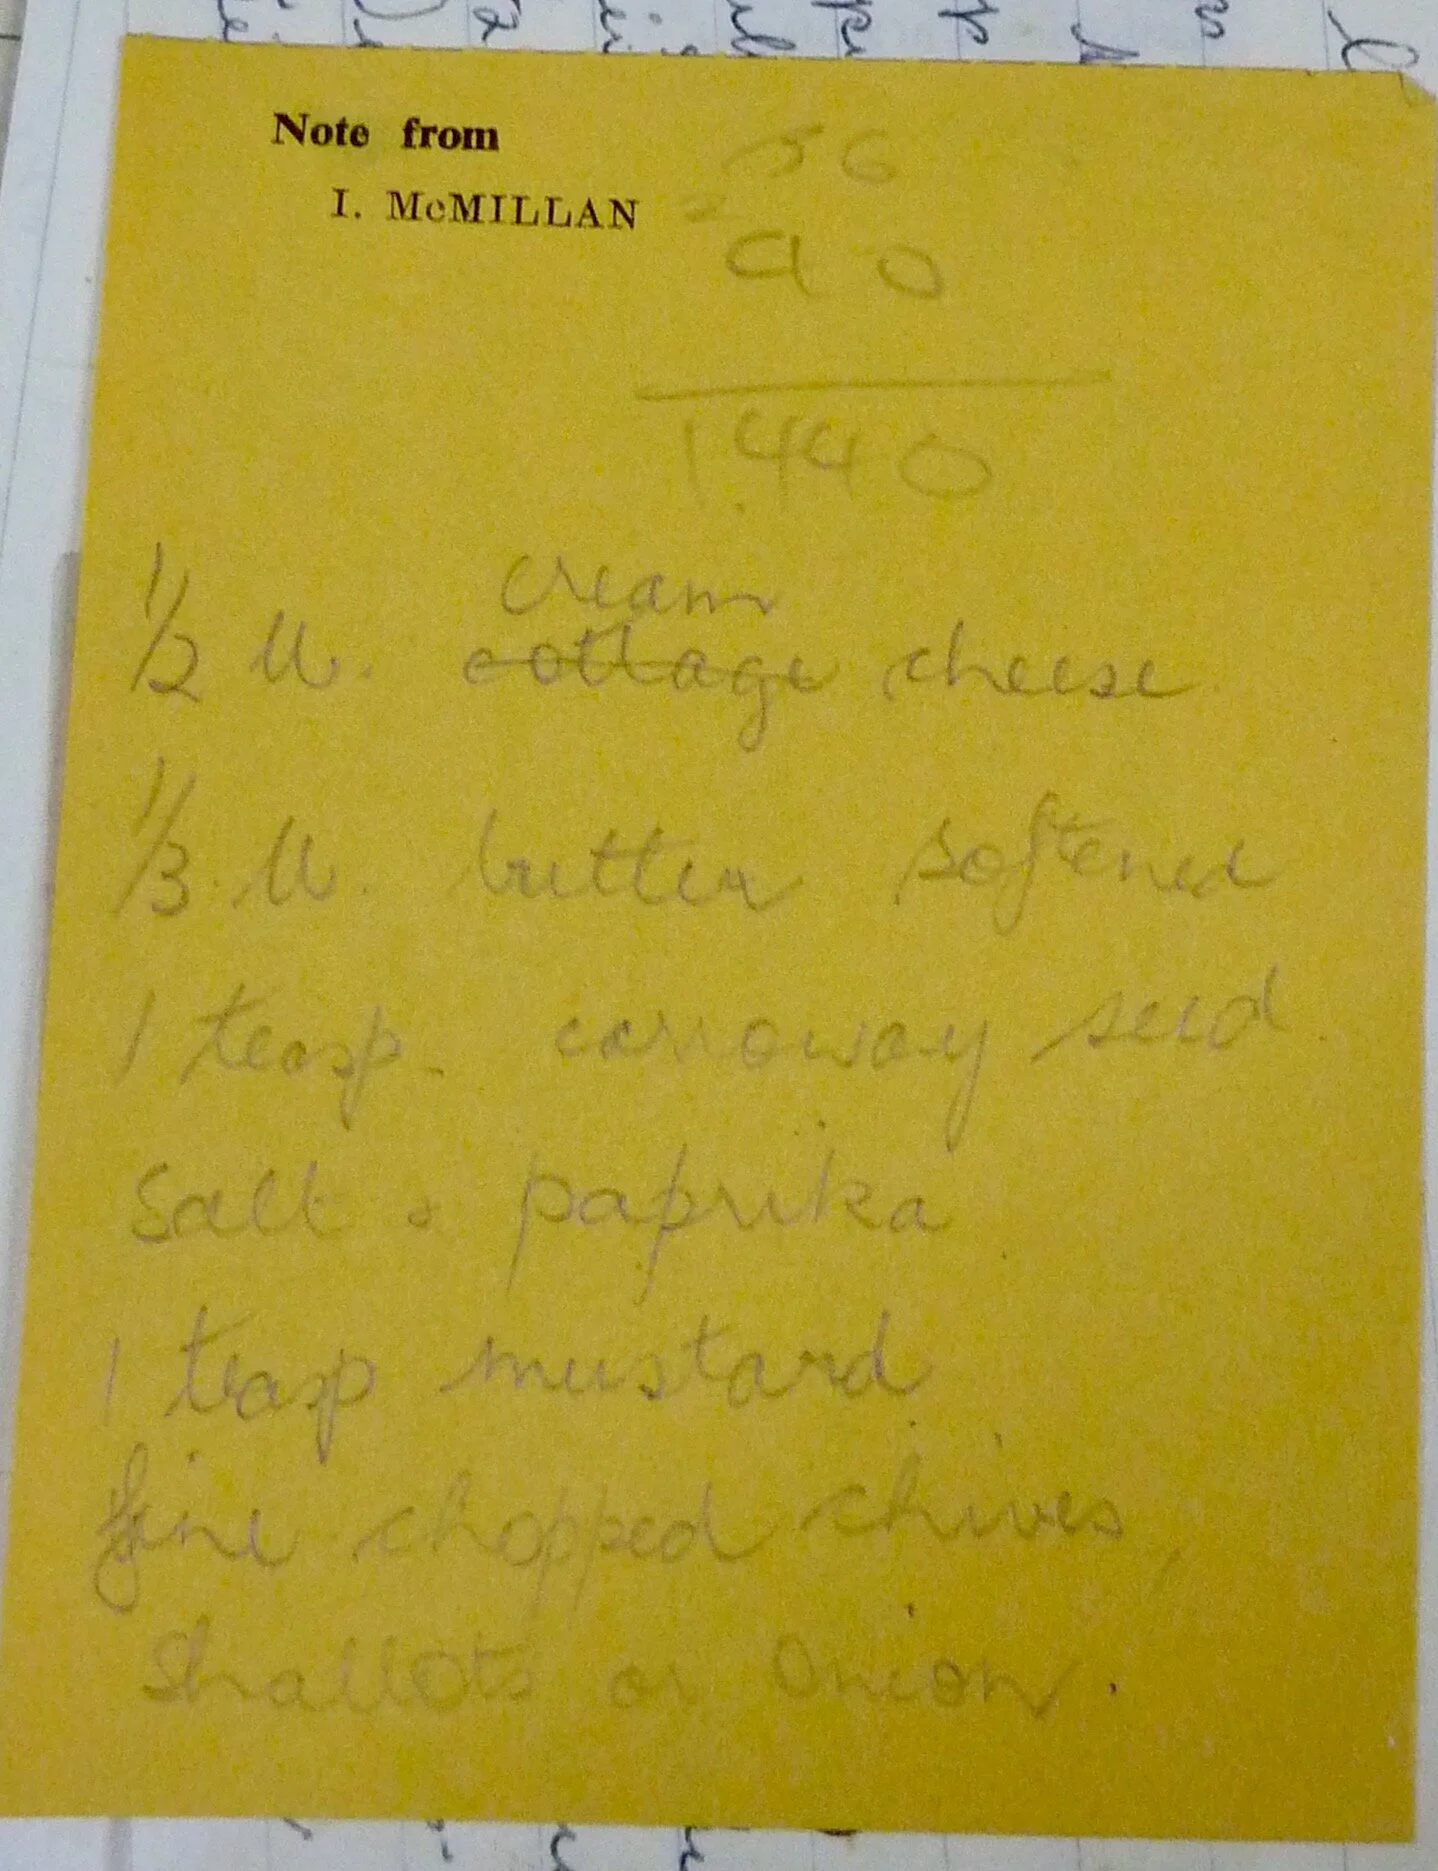 Note from
I. McMILLAN
56
90
1440
cream
1/2 lb. cottage cheese
1/3 lb. butter softened
1 teasp. carroway seed.
Salt & paprika
1 teasp mustard
fine chopped chives,
Shallots or Onion.